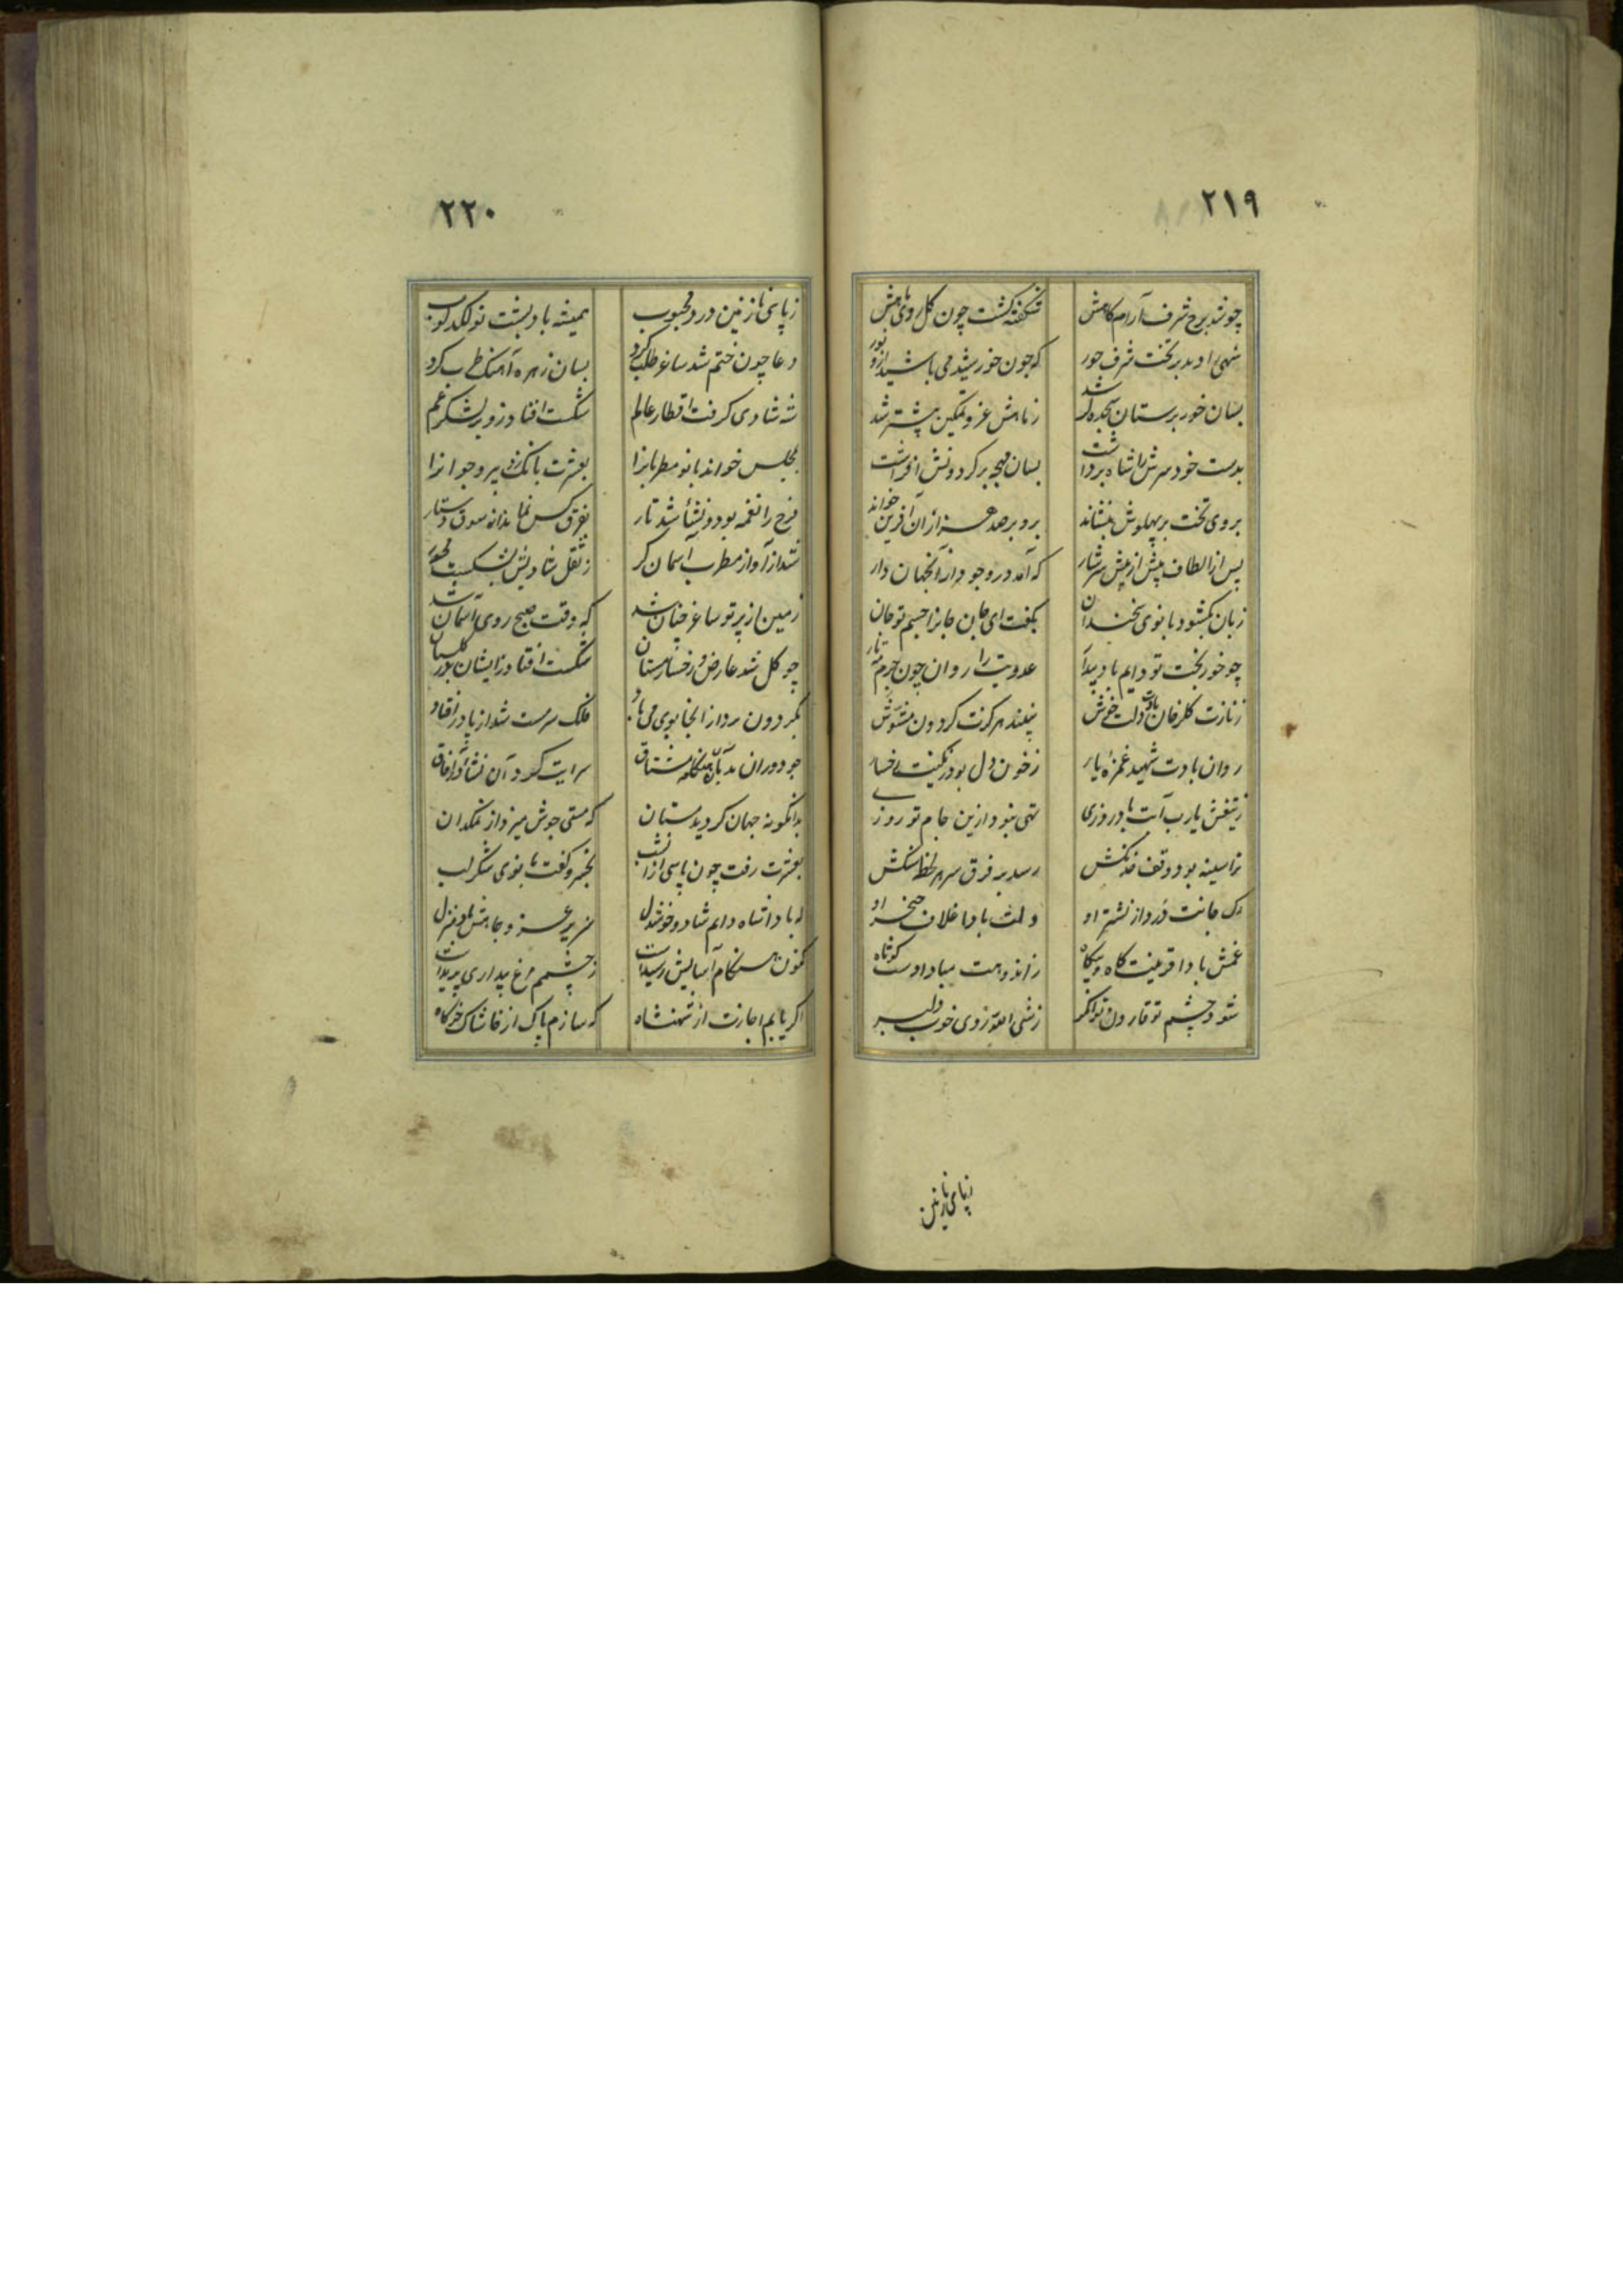 ۲۱۹
چو شد برج شرف آرام کاهش شکفته کشت چون کل روی ماهش
شهی را دید بر تخت شرف حور که چون خورشید می پاشید ازو نور
بسان خور پرستان سجده بر شد ز ماهش عز و تمکین بیشتر شد
بدست خود سرش را شاه برداشت بسان مهچه بر کردونش افراشت
بروی تخت بر پهلوش بنشاند برو بر صد هزاران آفرین خواند
پس از الطاف بیش از بیش سرشار که آمد در وجود از آن جهان دار
زبان بکشود بانوی سخندان بکفت ای جان جانرا جسم تو جان
چو خور بخت تو دایم باد بیدار عدویت را روان چون جرم مه تار
ز نازت کلرخان بادت دلت خوش نبیند هرکزت کردون مشوش
روان بادت شهید غمزه یار ز خون دل بود رنکینت رخسار
ز تیغش یارب آبت باد روزی تهی نبود ازین جام تو روزی
ترا سینه بود وقف خدنکش رسد بر فرق سر هر لحظه سنکش
رک جانت درد از نشتر او دلت بادا غلاف خنجر او
غمش بادا قرینت کاه و بیکاه ز اندوهت مبادا دست کوتاه
شود چشم تو قارون توانکر ز شی الله روی خوب دلبر
زپای نازنین
۲۲۰
ز پای نازنین در و محبوب همیشه باد پشت تو لکدکوب
دعا چون ختم شد ساغر طلب کرد بسان زهره آهنک طرب کرد
شه شادی کرفت اقطار عالم شکست افتاد زو بر لشکر غم
بمجلس خواند بانو مطربانرا بعشرت بانک زد پیر و جوانرا
فرح را نغمه پود و نشأ شد تار بفرق کس نماند از شوق دستار
شد از آواز مطرب آسمان کر ز ثقل شادیش بشکست محور
زمین از پرتو ساغر چنان شد که وقت صبح روی آسمان شد
چو کل شد عارض و رخسار مستان شکست افتاد زایشان بر کلستان
بکردون برد از آنجا بوی می باد فلک سرمست شد از پا در افتاد
چو دوران بد بآن هنکامه مشتاق سرایت کرد آن نشأ در آفاق
بدانکونه جهان کردید مستان که مستی جوش میزد از نمکدان
بعشرت رفت چون پاسی از آن شب بخسرو کفت بانوی شکر لب
که بادا شاه دایم شاد و خوشدل سریر عز و جاهش باد منزل
کنون هنکام آسایش رسیدست ز چشمم مرغ بیداری پریدست
اکر یابم اجازت از شهنشاه که سازم پاک از خاشاک خرکاه